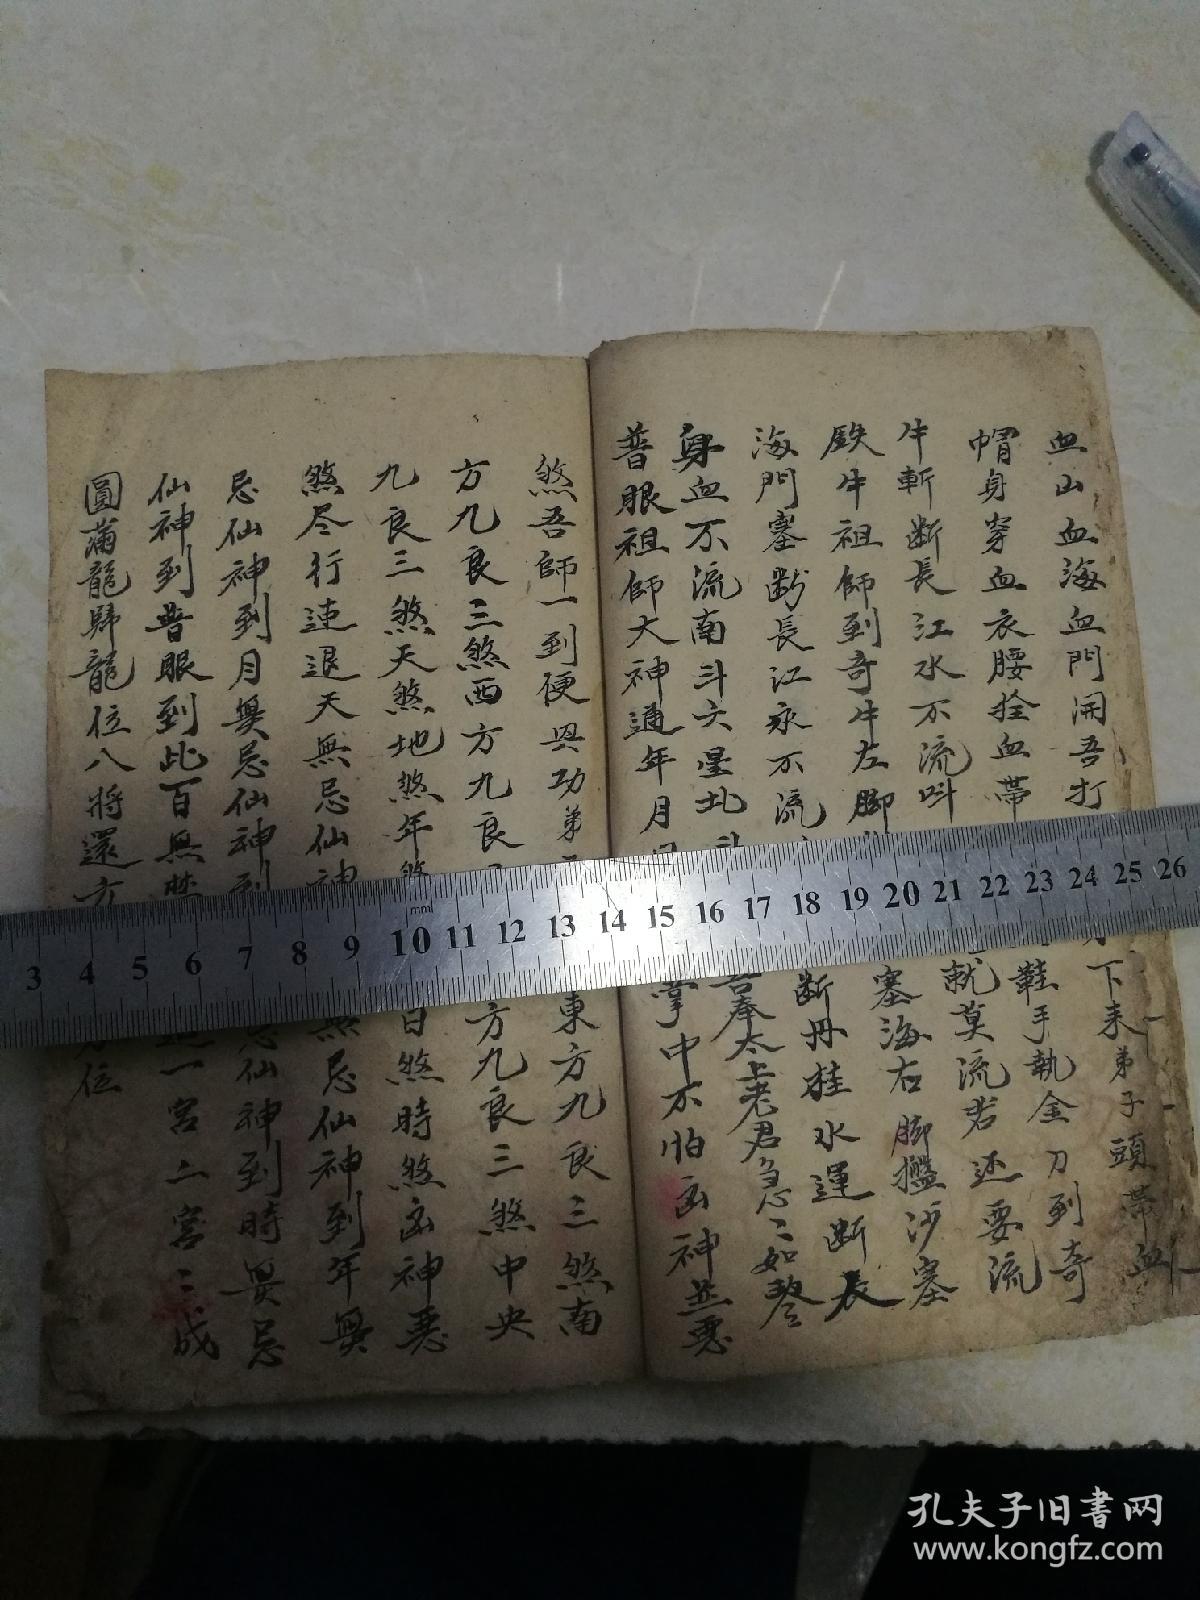 血山血海血門開吾打
下来弟子頭帯血
帽身穿血衣腰拴血帶
鞋手執金刀到奇
牛斬断長江水不流叫
就莫流若还要流
鉄牛祖師到奇牛左脚
塞海右脚攔沙塞
海門塞断長江永不流
断丹桂水運断長
身血不流南斗六星北斗
吾奉太上老君急〻如
普眼祖師大神通年月
掌中不怕凶神並惡
煞吾師一到便興功弟
東方九良三煞南
方九良三煞西方九良
方九良三煞中央
九良三煞天煞地煞年煞
日煞時煞凶神惡
煞尽行速退天無忌仙神
無忌仙神到年無
忌仙神到月無忌仙神到
忌仙神到時無忌
仙神到普眼到此百無禁
一宮二宮三成
圓滿龍歸龍位八將還方
位
3 4 5 6 7 8 9 10 11 12 13 14 15 16 17 18 19 20 21 22 23 24 25 26
mm
孔夫子旧書网
www.kongfz.com